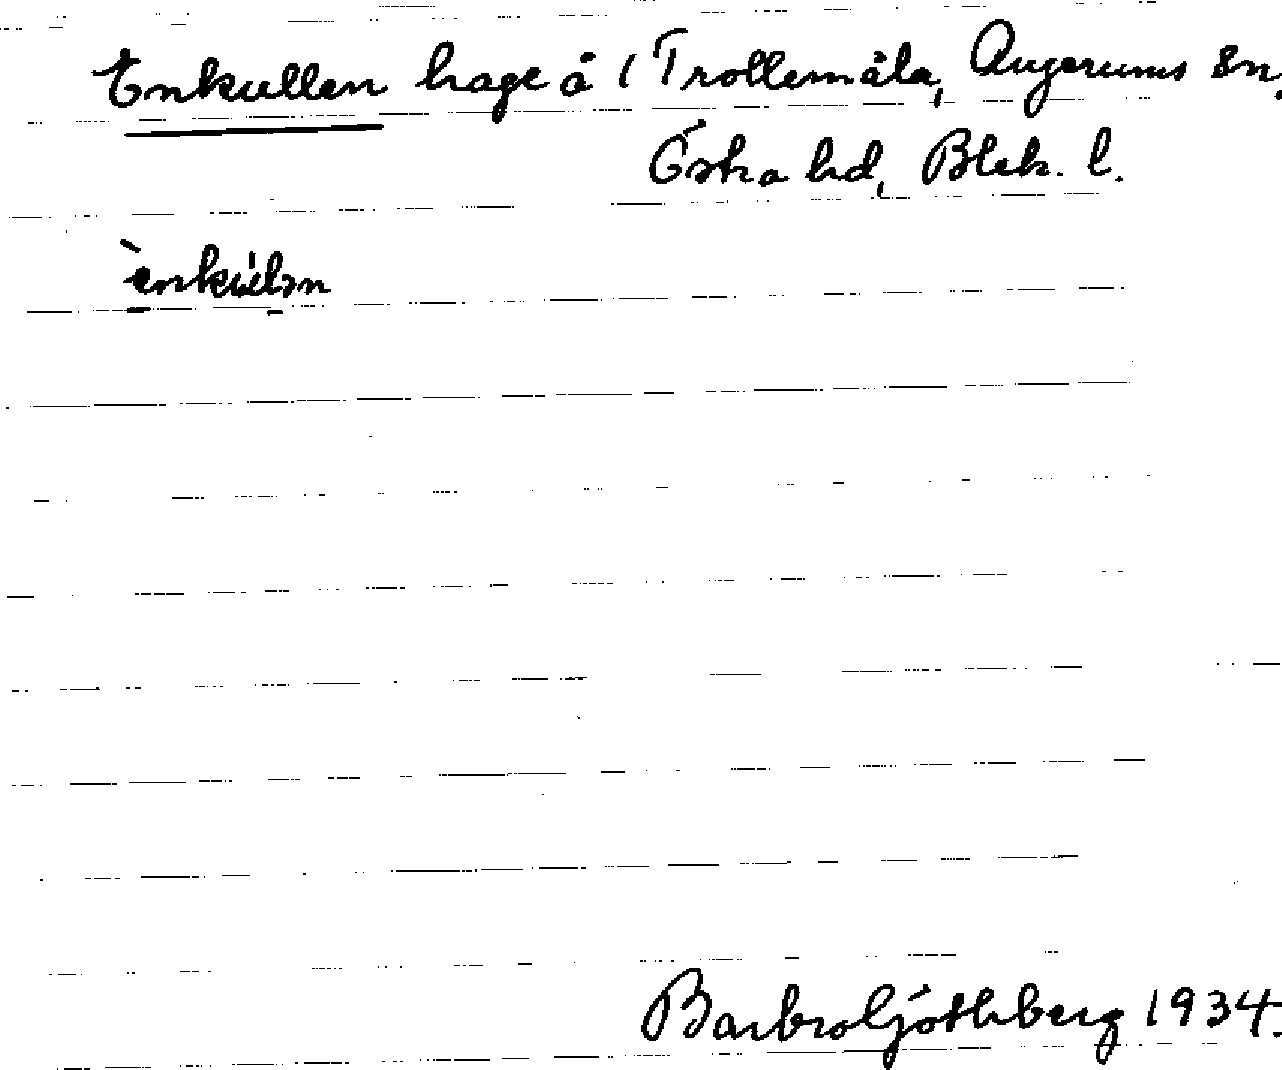 Enkullen hage å 1 Trollemåla, Augerums sn.
Östra hd, Blek. l.
ènkúlən
Barbro Göthberg 1934.